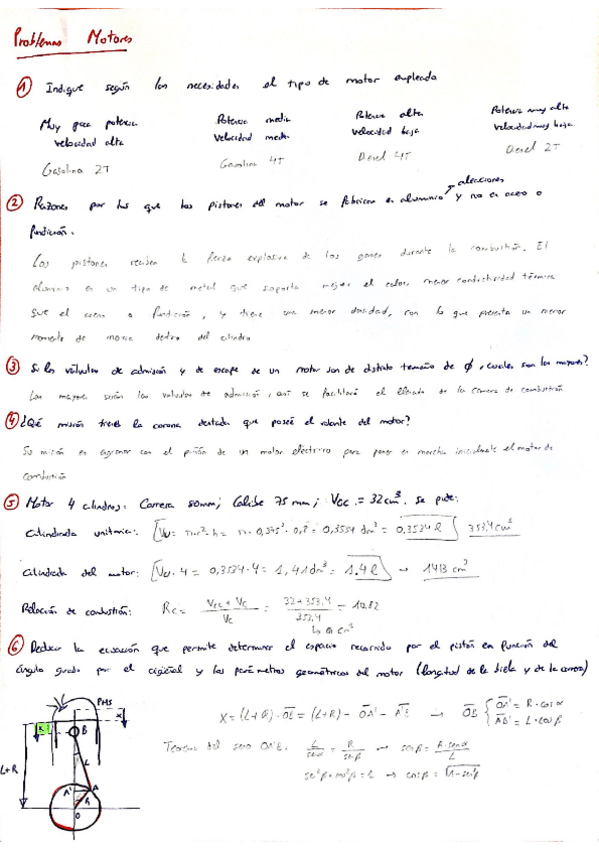 Problemas Motores
① Indique según las necesidades el tipo de motor empleado
Muy poca potencia Potencia media Potencia alta Potencia muy alta
velocidad alta velocidad media velocidad baja velocidad muy baja
Gasolina 2T Gasolina 4T Diesel 4T Diesel 2T
aleaciones
② Razones por las que los pistones del motor se fabrican en aluminio y no en acero o
fundición.
Los pistones reciben la fuerza explosiva de los gases durante la combustión. El
aluminio es un tipo de metal que soporta mejor el calor, menor conductividad térmica
que el acero o fundición, y tiene una menor densidad, con lo que presenta un menor
momento de dentro del cilindro
③ Si las válvulas de admisión y de escape de un motor son de distinto tamaño de ϕ, cuales son las mayores?
Las mayores serán las valvulas de admisión, así se facilitará el llenado de la cámara de combustión
④ ¿Qué misión tiene la corona dentada que poseé el volante del motor?
Su misión es engranar con el piñón de un motor eléctrico para poner en marcha inicialmente el motor de
combustión
⑤ Motor 4 cilindros: Carrera 80mm; Calibre 75 mm; Vcc = 32cm³. se pide:
Cilindrada unitaria: Vu = πr²·h = π·0,375²·0,8 = 0,3534 dm³ = 0,3534 l 353,4 cm³
Cilindrada del motor: Vu·4 = 0,3534·4 = 1,41dm³ = 1.4 l → 1413 cm³
Relación de combustión: Rc = Vcc + Vc / Vc = 32+353,4 /
en cm³
⑥ Deducir la ecuación que permite determinar el espacio recorrido por el pistón en función del
ángulo girado por el cigüeñal y los parámetros geométricos del motor (longitud de la biela y de la carrera)
PMS
x
B
L+R
L
A' A
R
O
X = (L+R) - OB = (L+R) - OA' - A'B → OB { OA' = R·cos α
A'B = L·cos β
Teorema del seno OA'B: L/sen α = R/sen β → sen β = R·sen α / L
sen²β + cos²β = 1 → cos β = √1-sen²β